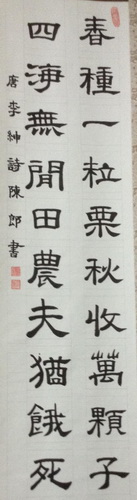 春種一粒粟秋收萬顆子
四海無閒田農夫猶餓死
唐李紳詩陳郎書